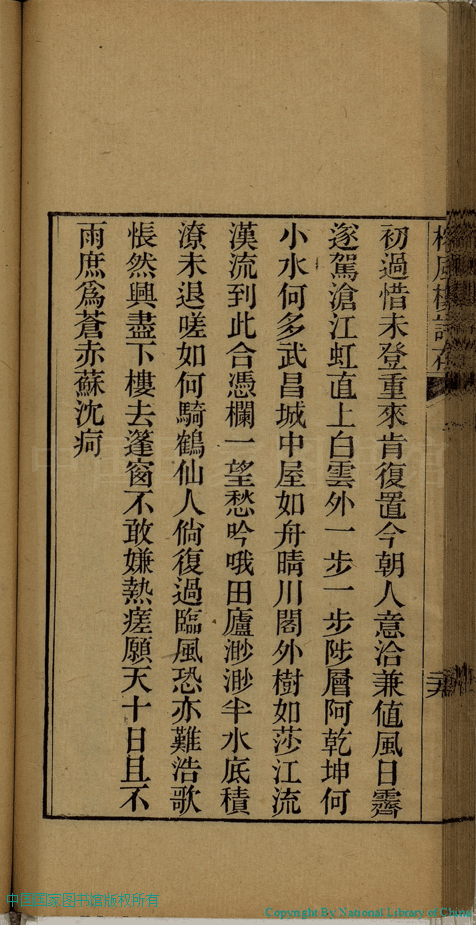 初過惜未登重來肯復置今朝人意洽兼值風日霽
遂駕滄江虹直上白雲外一步一步陟層阿乾坤何
小水何多武昌城中屋如舟晴川閣外樹如莎江流
漢流到此合憑欄一望愁吟哦田廬渺渺半水底積
潦未退嗟如何騎鶴仙人倘復過臨風恐亦難浩歌
悵然興盡下樓去蓬窗不敢嫌熱瘥願天十日且不
雨庶爲蒼赤蘇沈疴
中国国家图书馆版权所有
Copyright By National Library of China